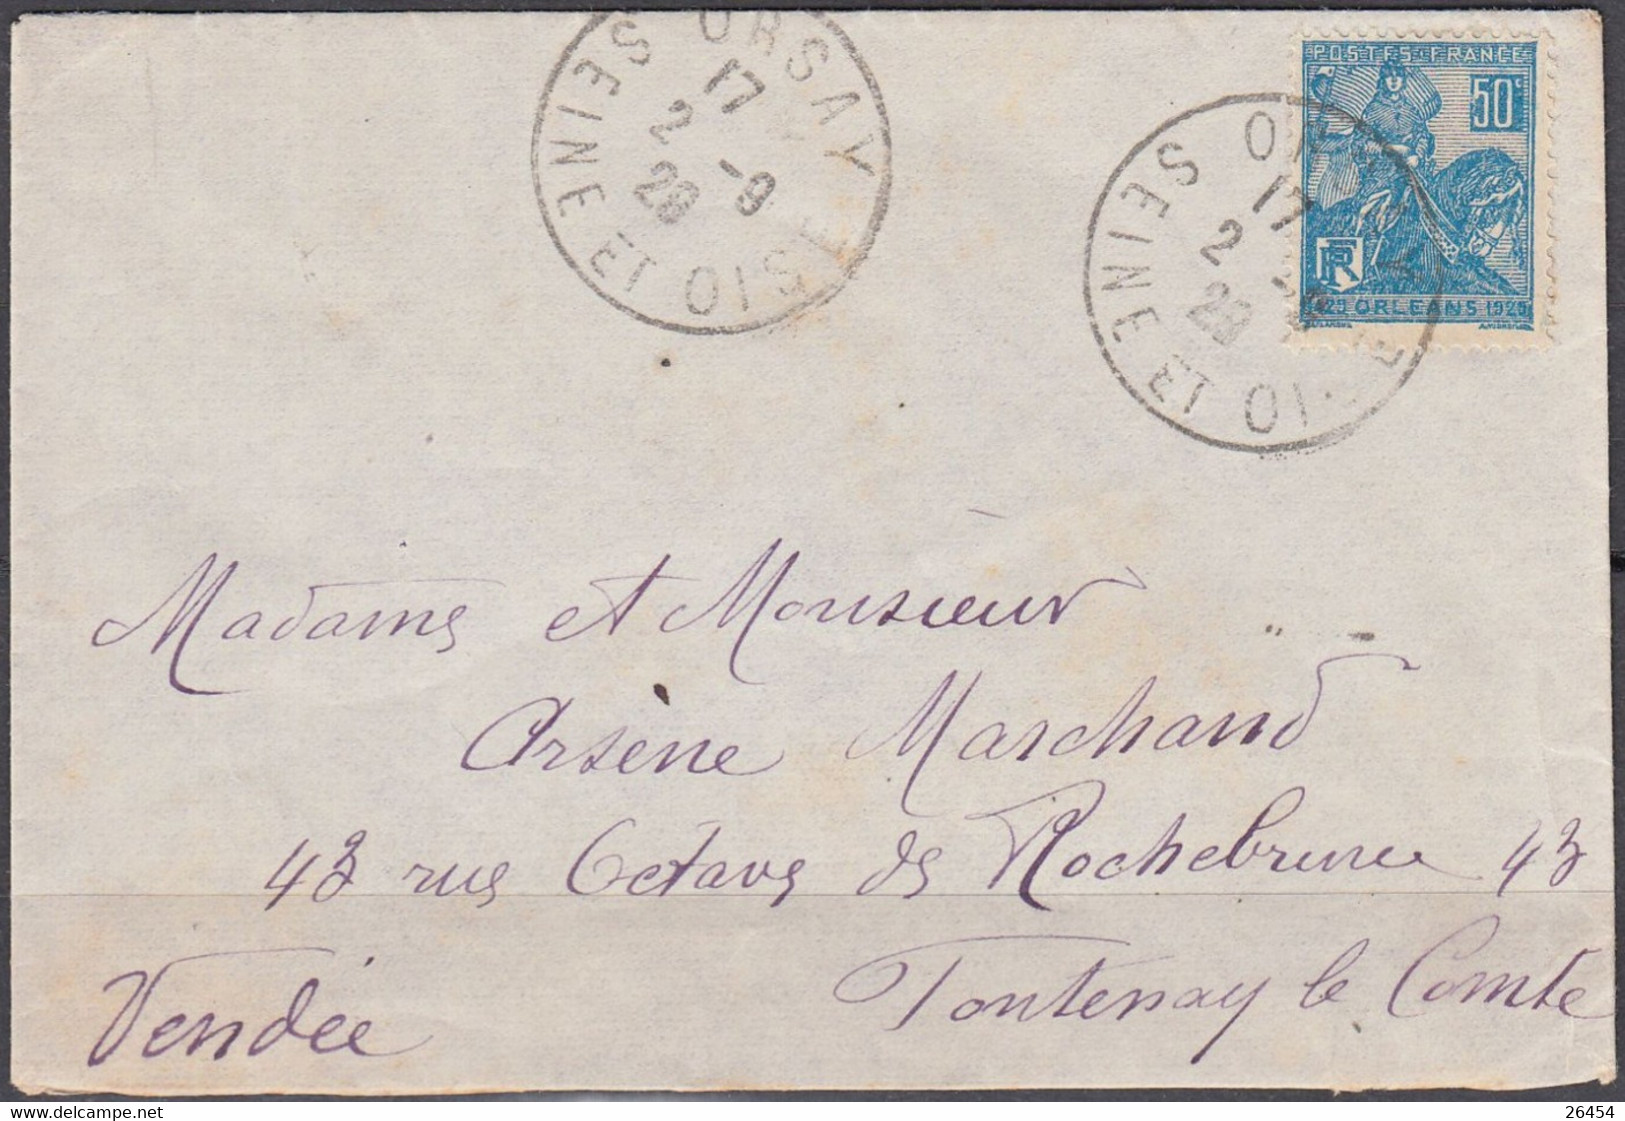 ORSAY
17
2 -9
29
SEINE ET OISE
POSTES·FRANCE
50c
RF
1429 ORLEANS 1929
17
2
29
SEINE ET OI
Madame et Monsieur
Arsène Marchand
43 rue Octave de Rochebrune 43
Fontenay le Comte
Vendée
www.delcampe.net
marcophil
26454